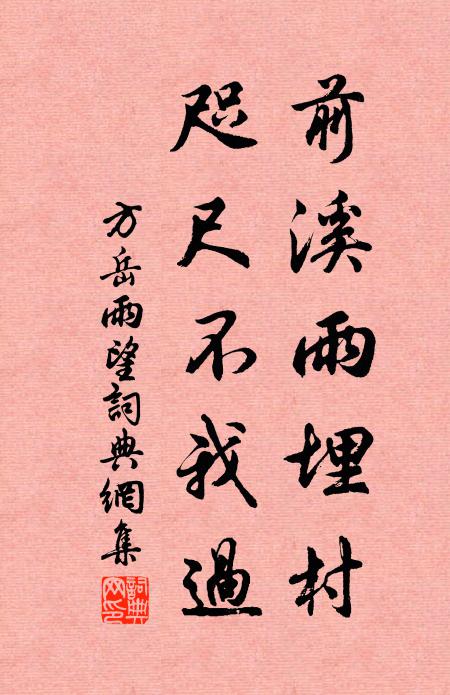 前溪雨埋村
咫尺不我過
方岳雨望詞典網集
詞典網印